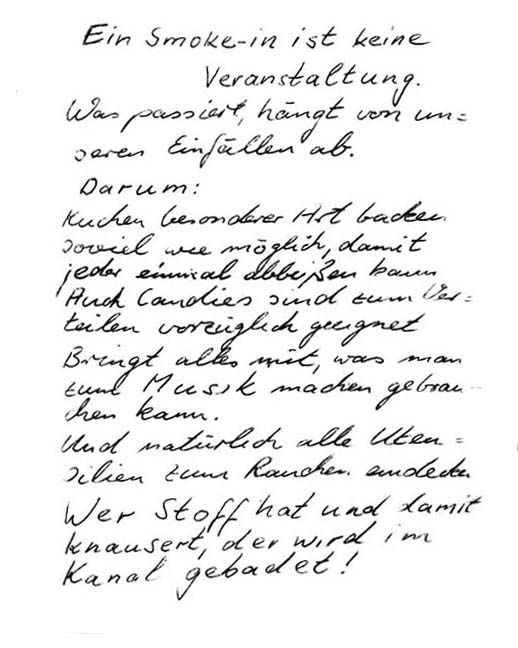 Ein Smoke-in ist keine
Veranstaltung.
Was passiert, hängt von un=
seren Einfällen ab.
Darum:
Kuchen besonderer Art backen
soviel wie möglich, damit
jeder einmal abbeißen kann
Auch Candies sind zum Ver=
teilen vorzüglich geeignet
Bringt alles mit, was man
zum Musik machen gebrau-
chen kann.
Und natürlich alle Uten=
silien zum Rauchen eindecken
Wer Stoff hat und damit
knausert, der wird im
Kanal gebadet!